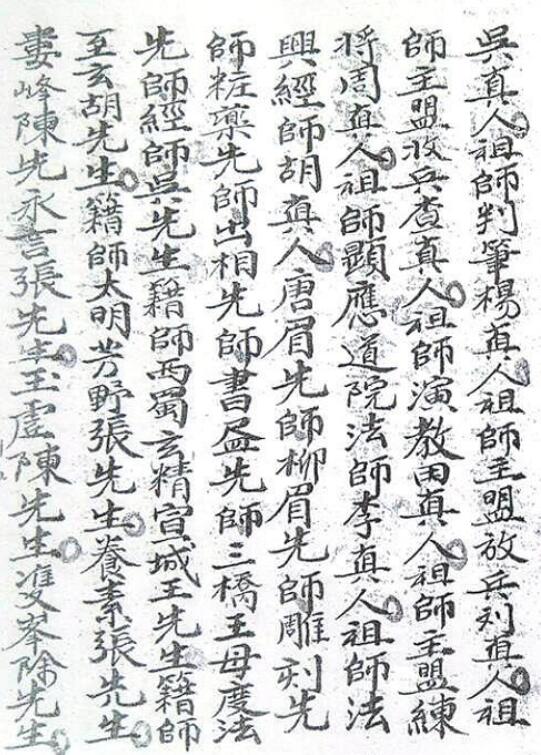 吳真人祖師判筆楊真人祖師主盟放兵刘真人祖
師主盟收兵查真人祖師演教田真人祖師主盟練
将周真人祖師顕應道院法師李真人祖師法
興經師胡真人唐眉先師柳眉先師雕刻先
師粧藥先師出相先師書盆先師三橋王母度法
先師經師吳先生籍師西蜀玄精宣城王先生籍師
至玄胡先生籍師太明芳野張先生養素張先生
婁峰陳先永言張先生玉虛陳先生雙峯除先生